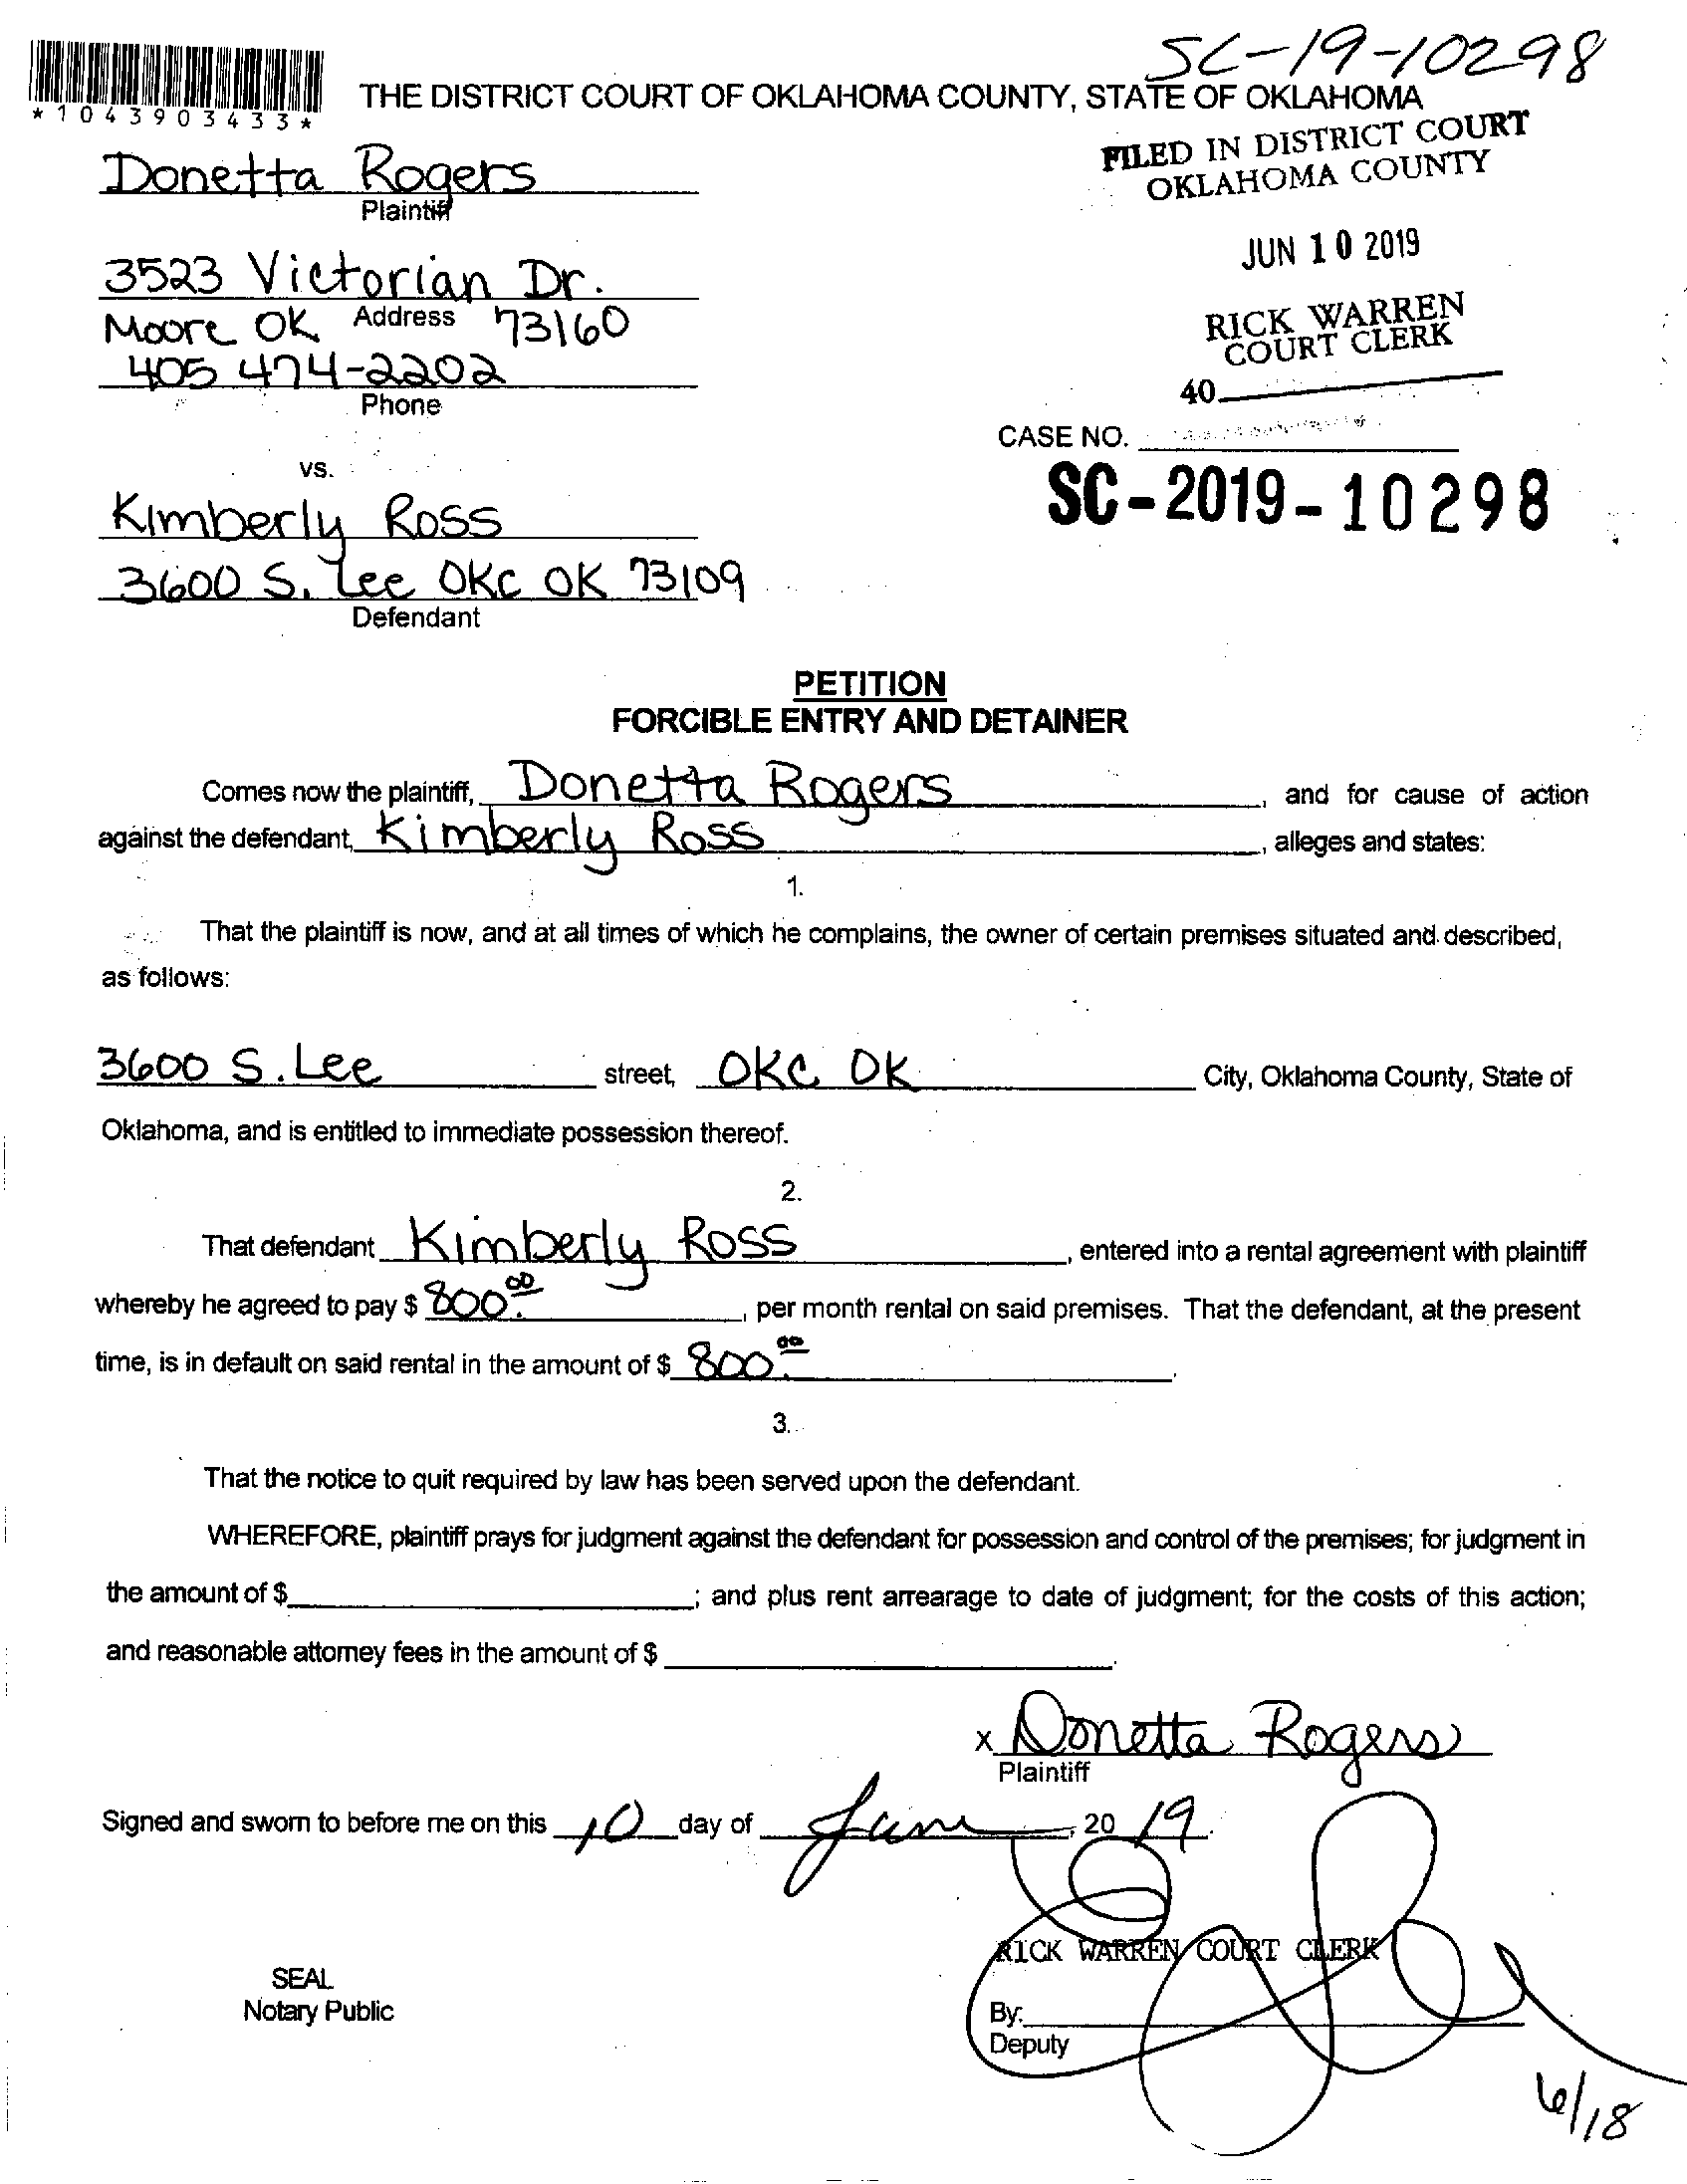 SC-19-10298
*1043903433*
THE DISTRICT COURT OF OKLAHOMA COUNTY, STATE OF OKLAHOMA
FILED IN DISTRICT COURT
OKLAHOMA COUNTY
Donetta Rogers
Plaintiff
JUN 10 2019
3523 Victorian Dr.
Address
Moore OK 73160
RICK WARREN
COURT CLERK
405 474-2202
Phone
40
CASE NO.
SC-2019-10298
vs.
Kimberly Ross
3600 S. Lee OKC OK 73109
Defendant
PETITION
FORCIBLE ENTRY AND DETAINER
Comes now the plaintiff, Donetta Rogers, and for cause of action
against the defendant, Kimberly Ross, alleges and states:
1.
That the plaintiff is now, and at all times of which he complains, the owner of certain premises situated and described,
as follows:
3600 S. Lee street, OKC OK City, Oklahoma County, State of
Oklahoma, and is entitled to immediate possession thereof.
2.
That defendant Kimberly Ross, entered into a rental agreement with plaintiff
whereby he agreed to pay $ 800.00, per month rental on said premises. That the defendant, at the present
time, is in default on said rental in the amount of $ 800.00.
3.
That the notice to quit required by law has been served upon the defendant.
WHEREFORE, plaintiff prays for judgment against the defendant for possession and control of the premises; for judgment in
the amount of $; and plus rent arrearage to date of judgment; for the costs of this action;
and reasonable attorney fees in the amount of $.
x Donetta Rogers
Plaintiff
Signed and sworn to before me on this 10 day of June, 20 19.
RICK WARREN COURT CLERK
SEAL
Notary Public
By:
Deputy
6/18